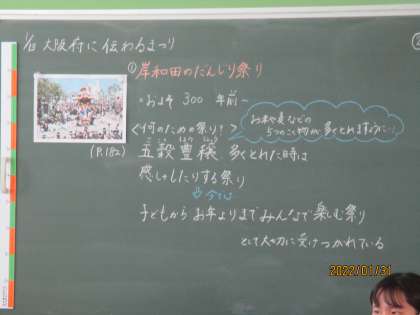 1/31 大阪府に伝わるまつり
① 岸和田のだんじり祭り
・およそ 300 年前〜
<何のための祭り?>
お米や麦などの
5つのこく物が多くとれますように…
(P.182)
ごこくほうじょう
五穀豊穣 多くとれた時は
感しゃしたりする祭り
⇩ 今では
子どもからお年よりまでみんなで楽しむ祭り
として大切に受けつがれている
2022/01/31